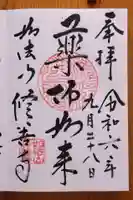 奉拝
令和六年
九月二十八日
薬師如来
修善寺